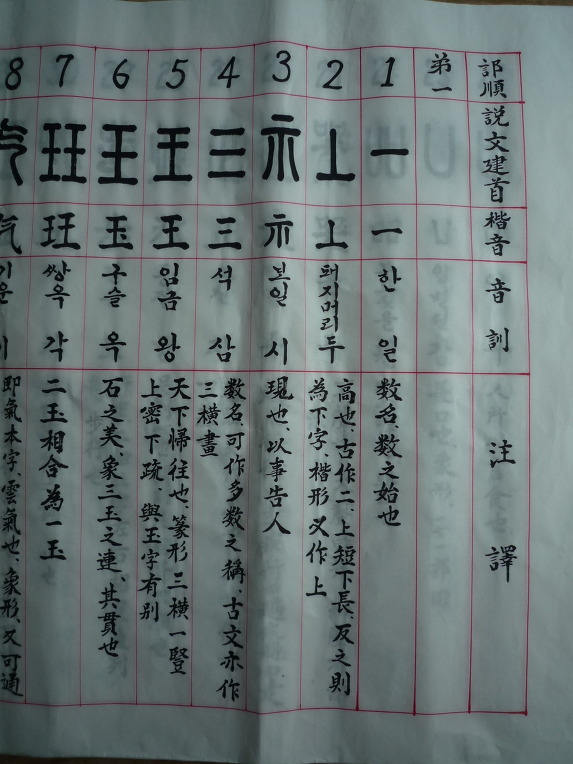 部順 説文建首 楷音 音訓 注譯
弟一
1 一 一 한 일 数名、数之始也
2 丄 丄 돼지머리 두 高也、古作二、上短下長、反之則
為下字、楷形又作上
3 示 示 보일 시 現也、以事告人
4 三 三 석 삼 数名、可作多数之稱、古文亦作
三横畫
5 王 王 임금 왕 天下歸往也、篆形三横一豎
上密下疏、與玉字有别
6 王 玉 구슬 옥 石之美、象三玉之連、其貫也
7 玨 玨 쌍옥 각 二玉相合為一玉
8 气 气 기운 이 即氣本字、雲氣也、象形、又可通